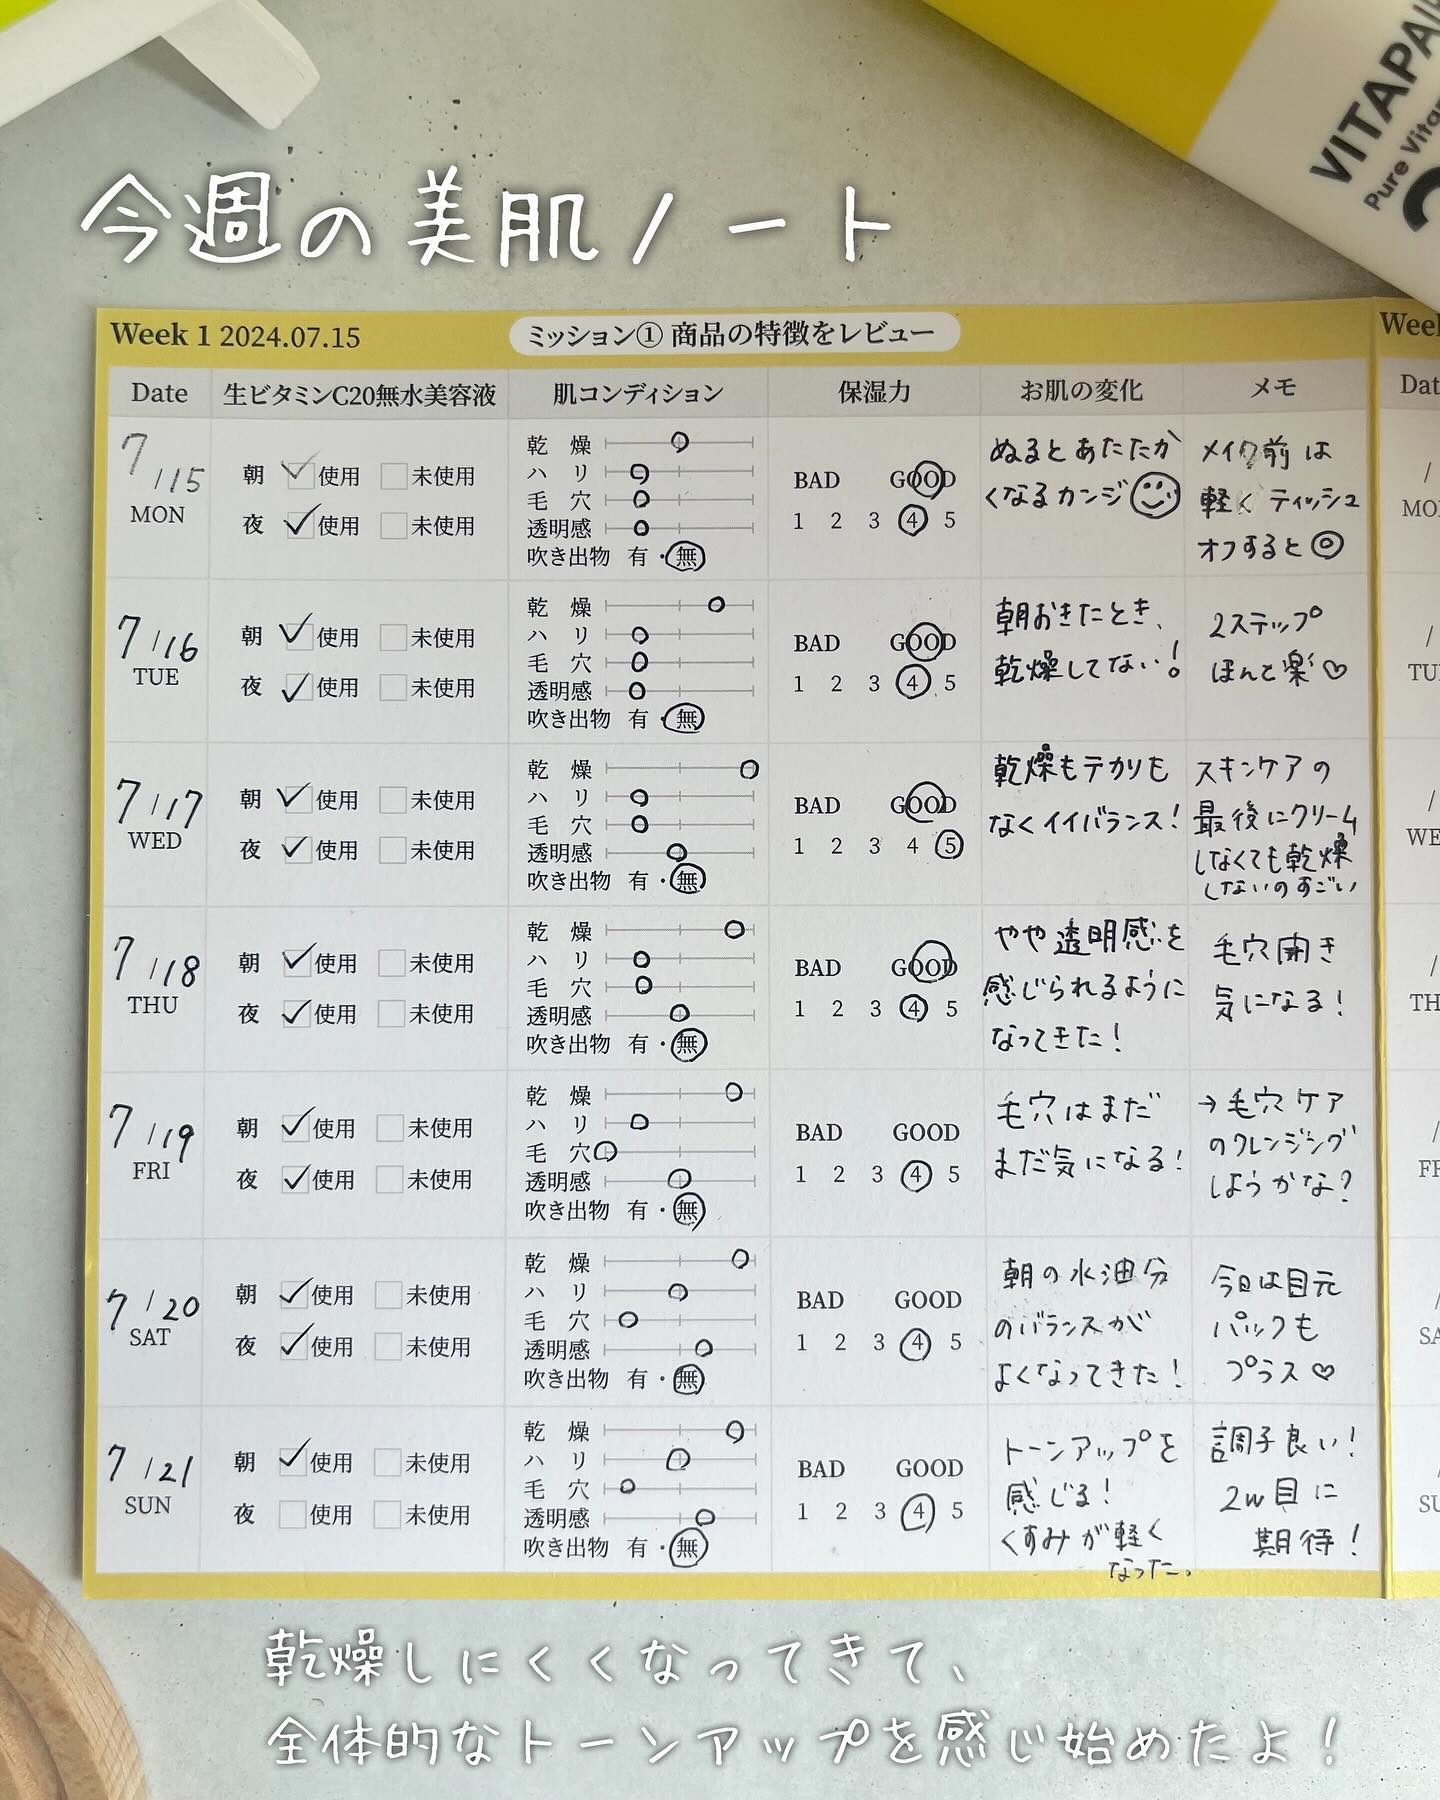 VITAPAI
Pure Vita
今週の美肌ノート
Week 1 2024.07.15 ミッション① 商品の特徴をレビュー
Date 生ビタミンC20無水美容液 肌コンディション 保湿力 お肌の変化 メモ
7/15
MON
朝 使用 未使用
夜 使用 未使用
乾 燥
ハ リ
毛 穴
透明感
吹き出物 有・無
BAD GOOD
1 2 3 4 5
ぬるとあたたか
くなるカンジ
メイク前は
軽くティッシュ
オフすると◎
7/16
TUE
朝 使用 未使用
夜 使用 未使用
乾 燥
ハ リ
毛 穴
透明感
吹き出物 有・無
BAD GOOD
1 2 3 4 5
朝おきたとき、
乾燥してない!
2ステップ
ほんと楽♡
7/17
WED
朝 使用 未使用
夜 使用 未使用
乾 燥
ハ リ
毛 穴
透明感
吹き出物 有・無
BAD GOOD
1 2 3 4 5
乾燥もテカリも
なくイイバランス!
スキンケアの
最後にクリーム
しなくても乾燥
しないのすごい
7/18
THU
朝 使用 未使用
夜 使用 未使用
乾 燥
ハ リ
毛 穴
透明感
吹き出物 有・無
BAD GOOD
1 2 3 4 5
やや透明感を
感じられるように
なってきた!
毛穴開き
気になる!
7/19
FRI
朝 使用 未使用
夜 使用 未使用
乾 燥
ハ リ
毛 穴
透明感
吹き出物 有・無
BAD GOOD
1 2 3 4 5
毛穴はまだ
まだ気になる!
→毛穴ケア
のクレンジング
しようかな?
7/20
SAT
朝 使用 未使用
夜 使用 未使用
乾 燥
ハ リ
毛 穴
透明感
吹き出物 有・無
BAD GOOD
1 2 3 4 5
朝の水油分
のバランスが
よくなってきた!
今日は目元
パックも
プラス♡
7/21
SUN
朝 使用 未使用
夜 使用 未使用
乾 燥
ハ リ
毛 穴
透明感
吹き出物 有・無
BAD GOOD
1 2 3 4 5
トーンアップを
感じる!
くすみが軽く
なった。
調子良い!
2w目に
期待!
乾燥しにくくなってきて、
全体的なトーンアップを感じ始めたよ!